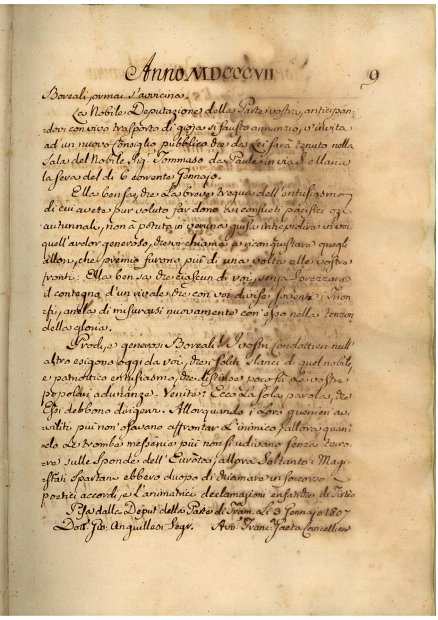 Anno MDCCCVII 9
Boreali, ormai s'avvicina.
La Nobile Deputazione della Parte vostra, anticipan-
dovi con vivo trasporto di gioja sì fausto annunzio, v'invita
ad un nuovo Consiglio pubblico, che da Lei sarà tenuto nella
Sala del Nobile Sig. Tommaso da Paule in via S. Maria
la sera del dì 6 corrente Gennajo.
Ella ben sa, che la breve tregua dell'entusiasmo
di cui avete pur voluto far dono ai consueti pacifici ozj
autunnali, non à potuto in veruna guisa intepidire in voi
quell'ardor generoso, che vi chiama a riconquistare quegli
allori, che premio furono più di una volta alle vostre
fronti: Ella ben sa che ciascun di voi, senza sprezzare
il contegno d'un rivale, che con voi divise sovente i Trion-
fi, anela di misurarsi nuovamente con esso nella tenzon
della gloria.
Prodi, e generosi Boreali! I vostri condottieri null'
altro esigono oggi da voi, che i soliti slanci di quel nobile,
e patriottico entusiasmo, che distinse però sì le vostre
popolari adunanze. Venite: Ecco la sola parola, che
Essi debbono dirigervi. Allorquando i loro guerrieri av-
viliti più non osavano affrontar l'inimico, allora quan-
do le trombe messenie più non si udivano senza terro-
re sulle sponde dell'Eurota, allora soltanto i Magi-
strati Spartani ebbero duopo di chiamare in soccorso i
poetici accordi, e l'animatrici declamazioni enfatiche di Tirteo
Pisa dalla Deput. della Parte di Tram. Li 3 Gennajo 1807
Dott. Gio. Anguillesi Segr. Avv. Franc. Jaeta Cancelliere